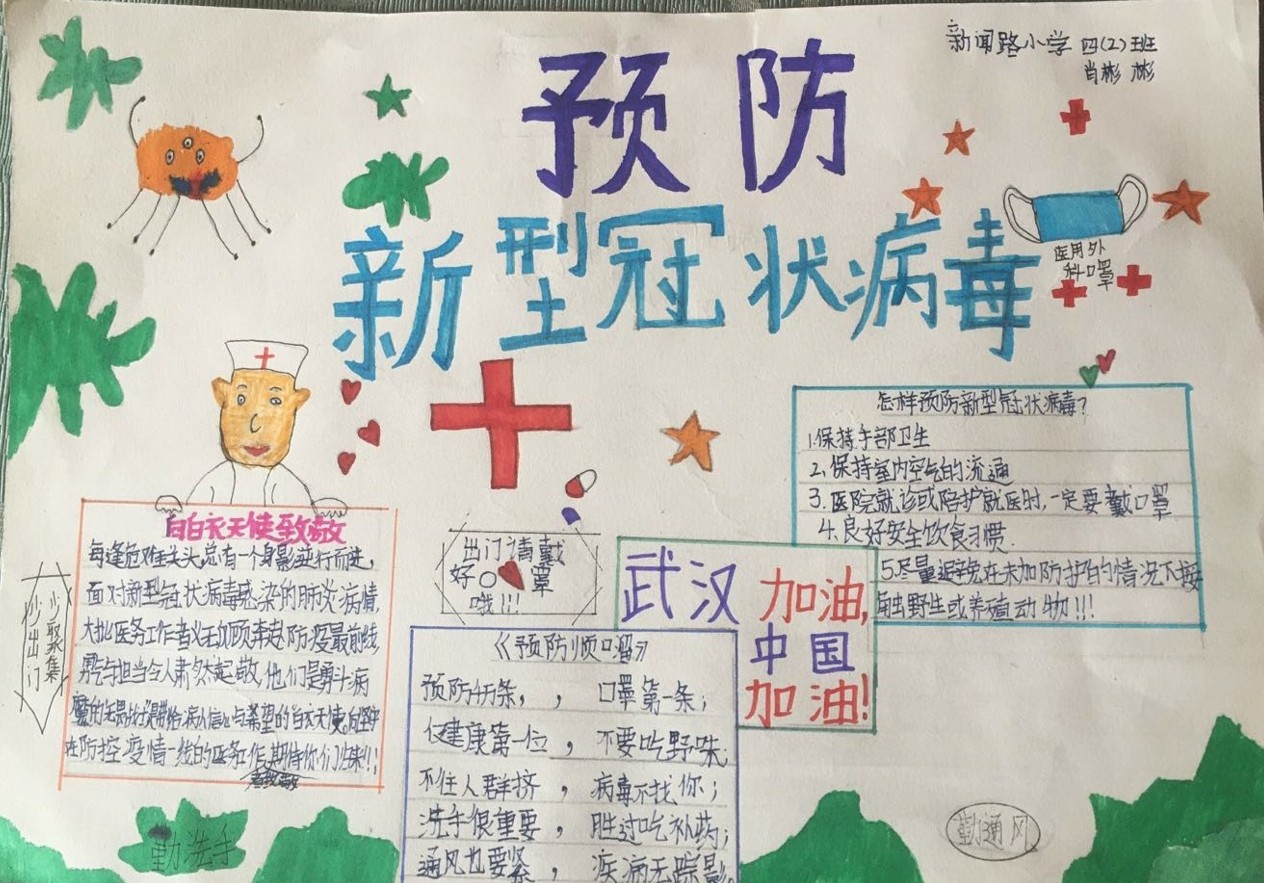 新闻路小学 四(2)班
肖彬彬
预防
新型冠状病毒
医用外
科口罩
怎样预防新型冠状病毒?
1.保持手部卫生
2.保持室内空气的流通
3.医院就诊或陪护就医时,一定要戴口罩
4.良好安全饮食习惯.
5.尽量避免在未加防护的情况下接
触野生或养殖动物!!!
向白衣天使致敬
每逢危难关头,总有一个身影逆行而进,
面对新型冠状病毒感染的肺炎病情,
大批医务工作者义无反顾奔赴防疫最前线,
勇气与担当令人肃然起敬,他们是勇斗病
魔的
病人信心与希望的白衣天使。向
在防控疫情一线的医务工作,期待你们归来!!!
者致敬
少聚集
少出门
出门请戴
好口罩
哦!!!
武汉加油,
中国
加油!
《预防顺口溜》
预防千万条,,口罩第一条;
健康第一位,不要吃野味;
不往人群挤,病毒不找你;
洗手很重要,胜过吃补药;
通风也要紧,疾病无踪影。
勤洗手
勤通风